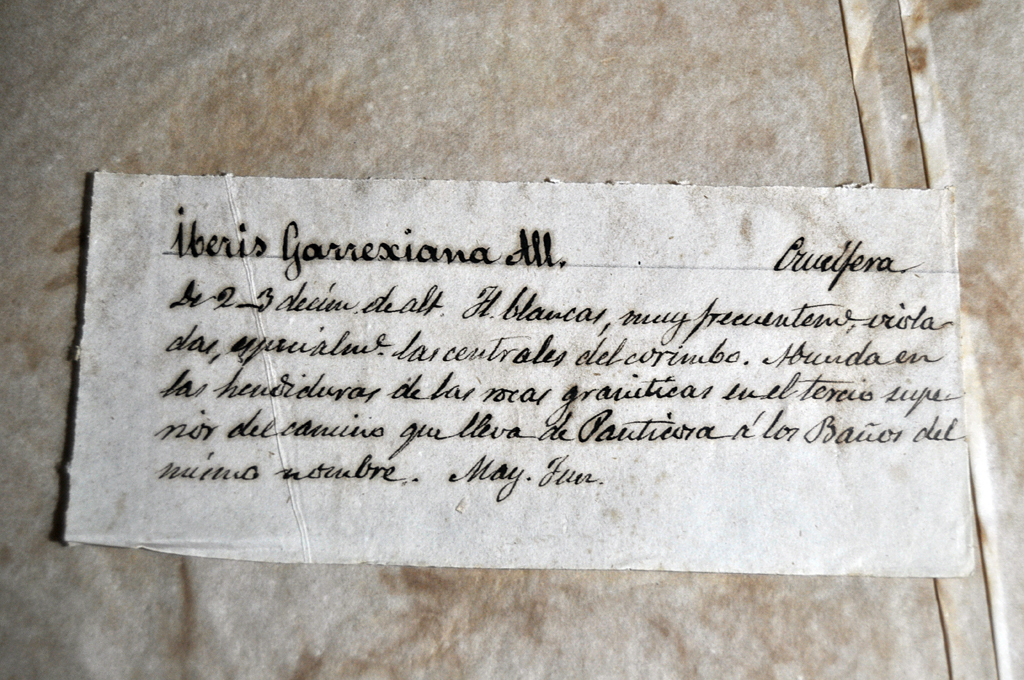 Iberis Garrexiana All. Crucífera
De 2-3 decím. de alt. Fl. blancas, muy frecuentemᵉ. viola-
das, especialmᵉ. las centrales del corimbo. Abunda en
las hendiduras de las rocas graníticas en el tercio supe-
rior del camino que lleva de Panticosa á los Baños del
mismo nombre. May. Jun.